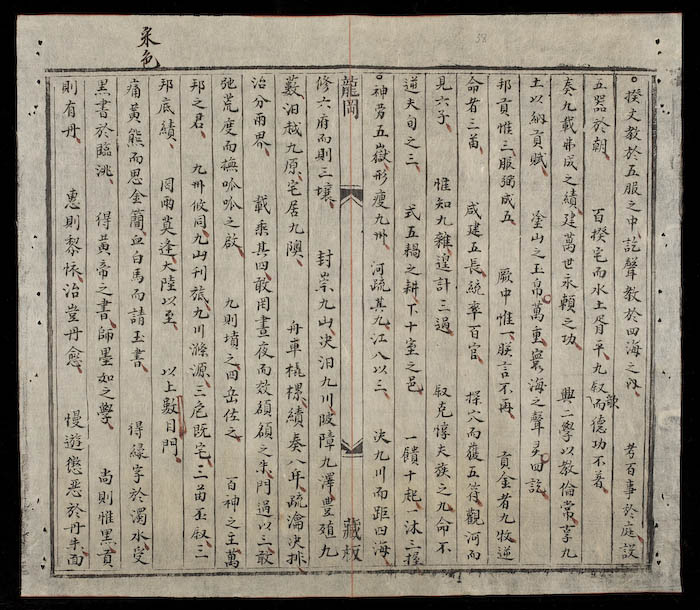 采色
58
揆文教於五服之中訖聲教於四海之内 考百事於庭設
五器於朝 百揆宅而水土胥平九叙歌而德功不著
奏九載弗成之績建萬世永賴之功 興二學以教倫常享九
土以納貢賦 塗山之玉帛萬重寰海之聲灵四訖
邦貢惟三服弼成五 厥中惟一朕言不再 貢金者九牧逆
命者三苗 咸建五長統率百官 探穴而獲五符觀河而
見六子 惟知九雜遑計三過 叙克惇夫族之九命不
道夫旬之三 式五耦之耕下十室之邑 一饋十起一沐三握
神勞五嶽形瘦九州 河疏其九江八以三 决九川而距四海
龍岡 藏板
修六府而則三壤 封崇九山决汨九川陂障九澤豐殖九
藪汨越九原宅居九隩 舟車橇樏績奏八年疏瀹决排
治分兩界 載乘其四敢囿晝夜而效頟頟之朱門過以三敢
弛荒度而撫呱呱之啟 九則墳之四岳佐之 百神之主萬
邦之君 九州攸同九山刊旅九川滌源三危既宅三苗丕叙三
邦底績 囙雨莫逢大陸以至 以上數目門
痛黃熊而思金簡血白馬而請玉書 得緑字於濁水受
黑書於臨洮 得黃帝之書師墨如之學 尚則惟黑貢
則有丹 惠則黎懷治豈丹愈 慢遊懲惡於丹朱面